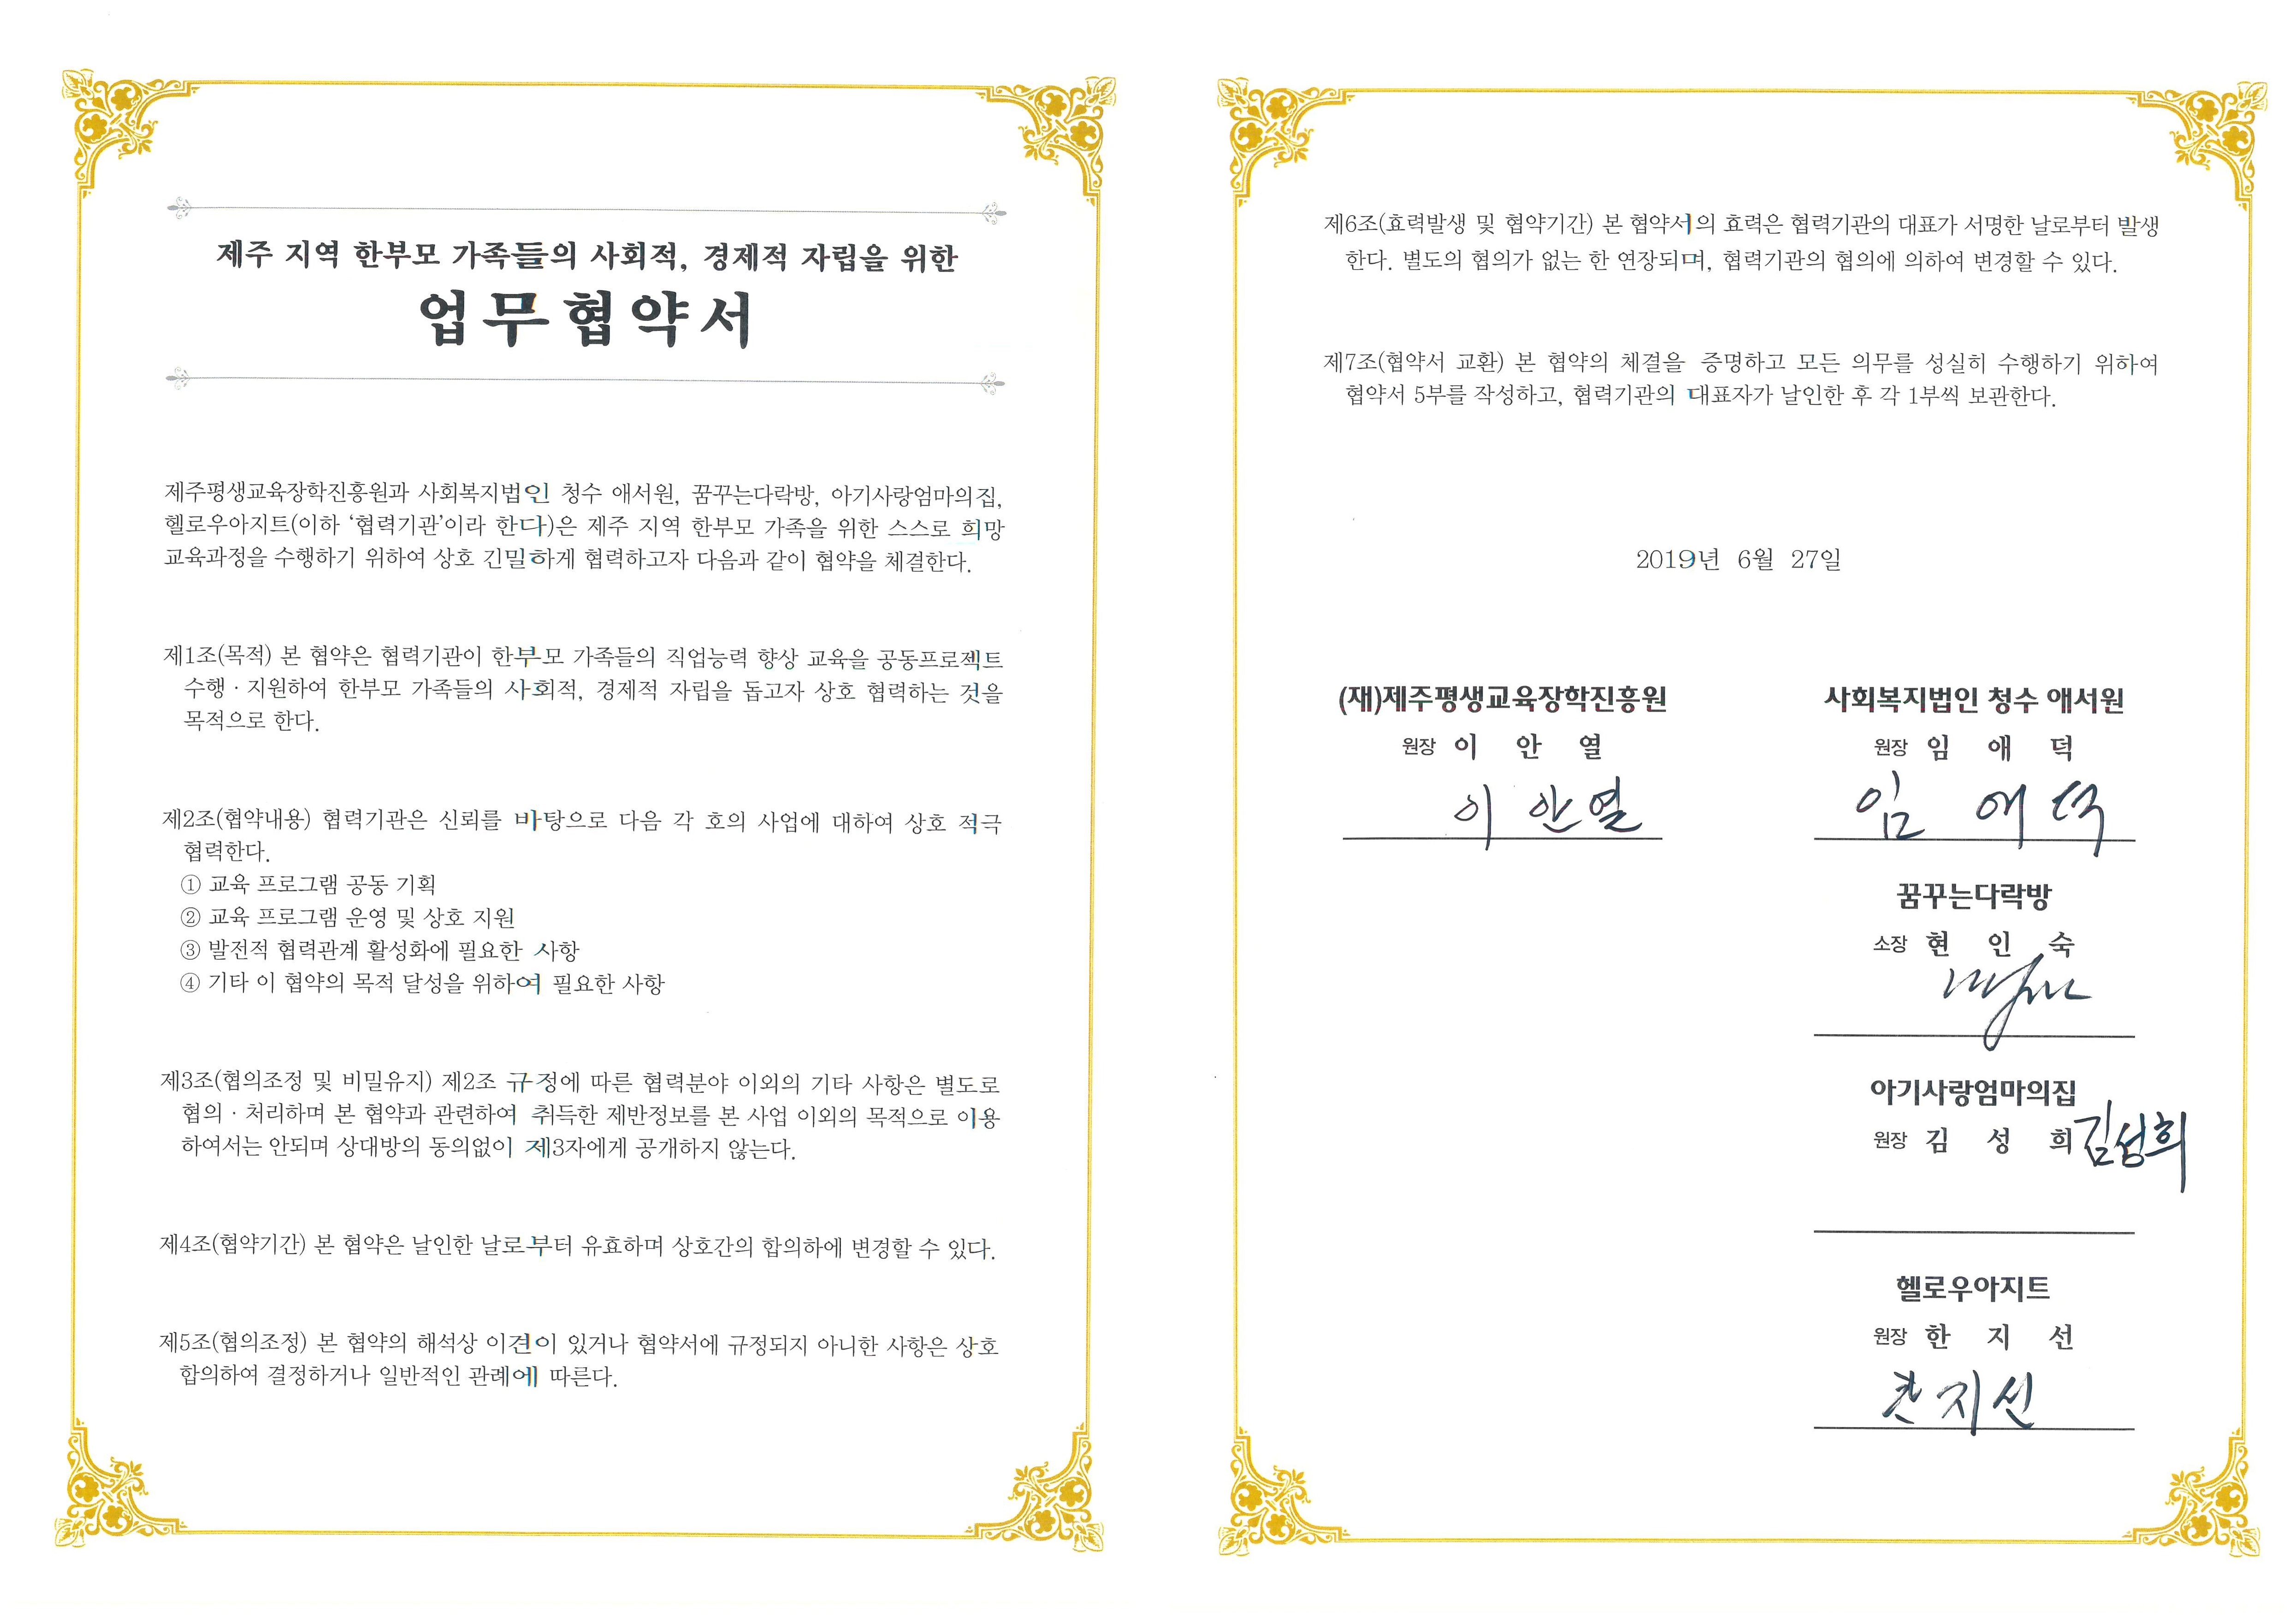 제주 지역 한부모 가족들의 사회적, 경제적 자립을 위한
업무협약서
제주평생교육장학진흥원과 사회복지법인 청수 애서원, 꿈꾸는다락방, 아기사랑엄마의집,
헬로우아지트(이하 ‘협력기관’이라 한다)은 제주 지역 한부모 가족을 위한 스스로 희망
교육과정을 수행하기 위하여 상호 긴밀하게 협력하고자 다음과 같이 협약을 체결한다.
제1조(목적) 본 협약은 협력기관이 한부모 가족들의 직업능력 향상 교육을 공동프로젝트
수행 · 지원하여 한부모 가족들의 사회적, 경제적 자립을 돕고자 상호 협력하는 것을
목적으로 한다.
제2조(협약내용) 협력기관은 신뢰를 바탕으로 다음 각 호의 사업에 대하여 상호 적극
협력한다.
① 교육 프로그램 공동 기획
② 교육 프로그램 운영 및 상호 지원
③ 발전적 협력관계 활성화에 필요한 사항
④ 기타 이 협약의 목적 달성을 위하여 필요한 사항
제3조(협의조정 및 비밀유지) 제2조 규정에 따른 협력분야 이외의 기타 사항은 별도로
협의 · 처리하며 본 협약과 관련하여 취득한 제반정보를 본 사업 이외의 목적으로 이용
하여서는 안되며 상대방의 동의없이 제3자에게 공개하지 않는다.
제4조(협약기간) 본 협약은 날인한 날로부터 유효하며 상호간의 합의하에 변경할 수 있다.
제5조(협의조정) 본 협약의 해석상 이견이 있거나 협약서에 규정되지 아니한 사항은 상호
합의하여 결정하거나 일반적인 관례에 따른다.
제6조(효력발생 및 협약기간) 본 협약서의 효력은 협력기관의 대표가 서명한 날로부터 발생
한다. 별도의 협의가 없는 한 연장되며, 협력기관의 협의에 의하여 변경할 수 있다.
제7조(협약서 교환) 본 협약의 체결을 증명하고 모든 의무를 성실히 수행하기 위하여
협약서 5부를 작성하고, 협력기관의 대표자가 날인한 후 각 1부씩 보관한다.
2019년 6월 27일
(재)제주평생교육장학진흥원
원장 이 안 열
이 안열
사회복지법인 청수 애서원
원장 임 애 덕
임 애 덕
꿈꾸는다락방
소장 현 인 숙
아기사랑엄마의집
원장 김 성 희 김성희
헬로우아지트
원장 한 지 선
한지선